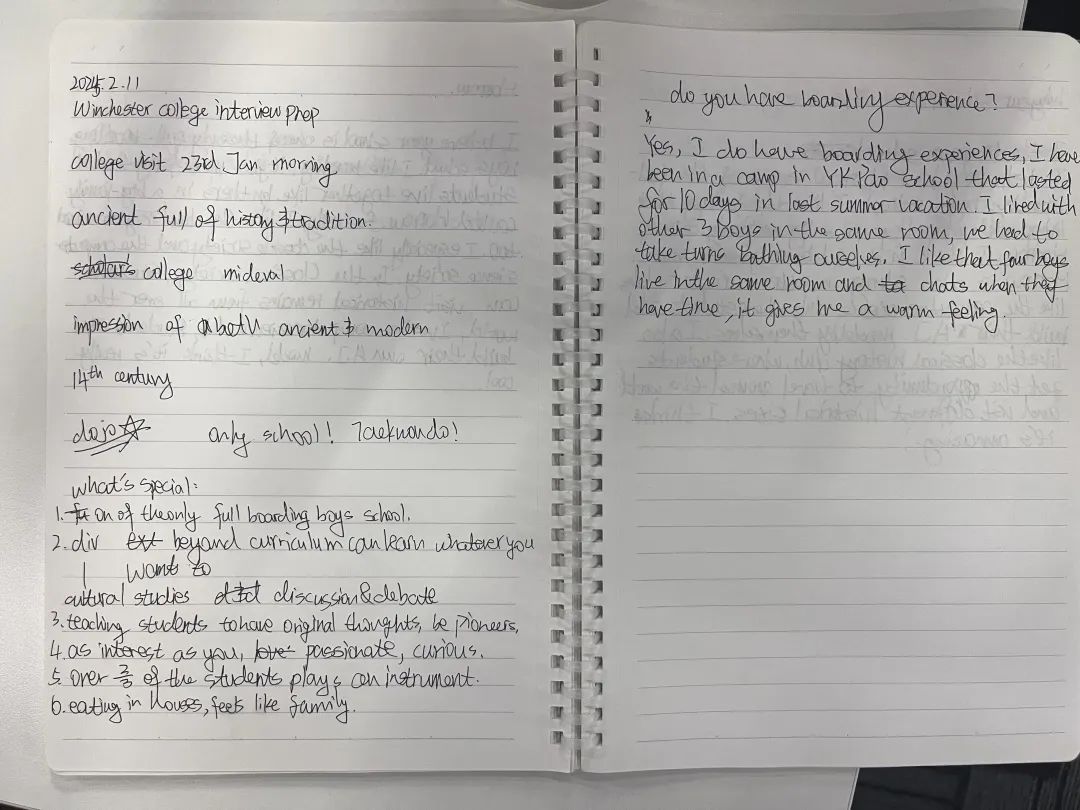 2025.2.11
Winchester college interview prep
college visit 23rd. Jan morning
ancient full of history & tradition.
scholars college mideval
impression of a both ancient & modern
14th century
dojo☆ only school! Taekwondo!
what's special:
1. on of the only full boarding boys school.
2. div ext beyond curriculum can learn whatever you
wants to
cultural studies discussion&debate
3. teaching students to have original thoughts, be pioneers,
4. as interest as you, love passionate, curious.
5. over of the students plays an instrument.
6. eating in houses, feels like family.
do you have boarding experience?
Yes, I do have boarding experiences, I have
been in a camp in YK Pao school that lasted
for 10 days in last summer vacation. I lived with
other 3 boys in the same room, we had to
take turns bathing ouselves. I like that four boys
live in the same room and chats when they
have time, it gives me a warm feeling.